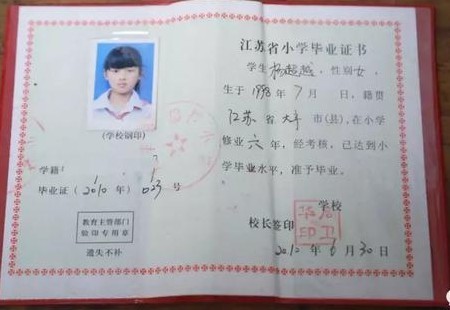 江苏省小学毕业证书
学生杨超越，性别女，
生于1998年7月 日，籍贯
江苏省大丰市(县)，在小学
修业六年，经考核，已达到小
学毕业水平，准予毕业。
学校
校长签印
2010年6月30日
(学校钢印)
学籍
毕业证(2010年)023号
教育主管部门
验印专用章
遗失不补